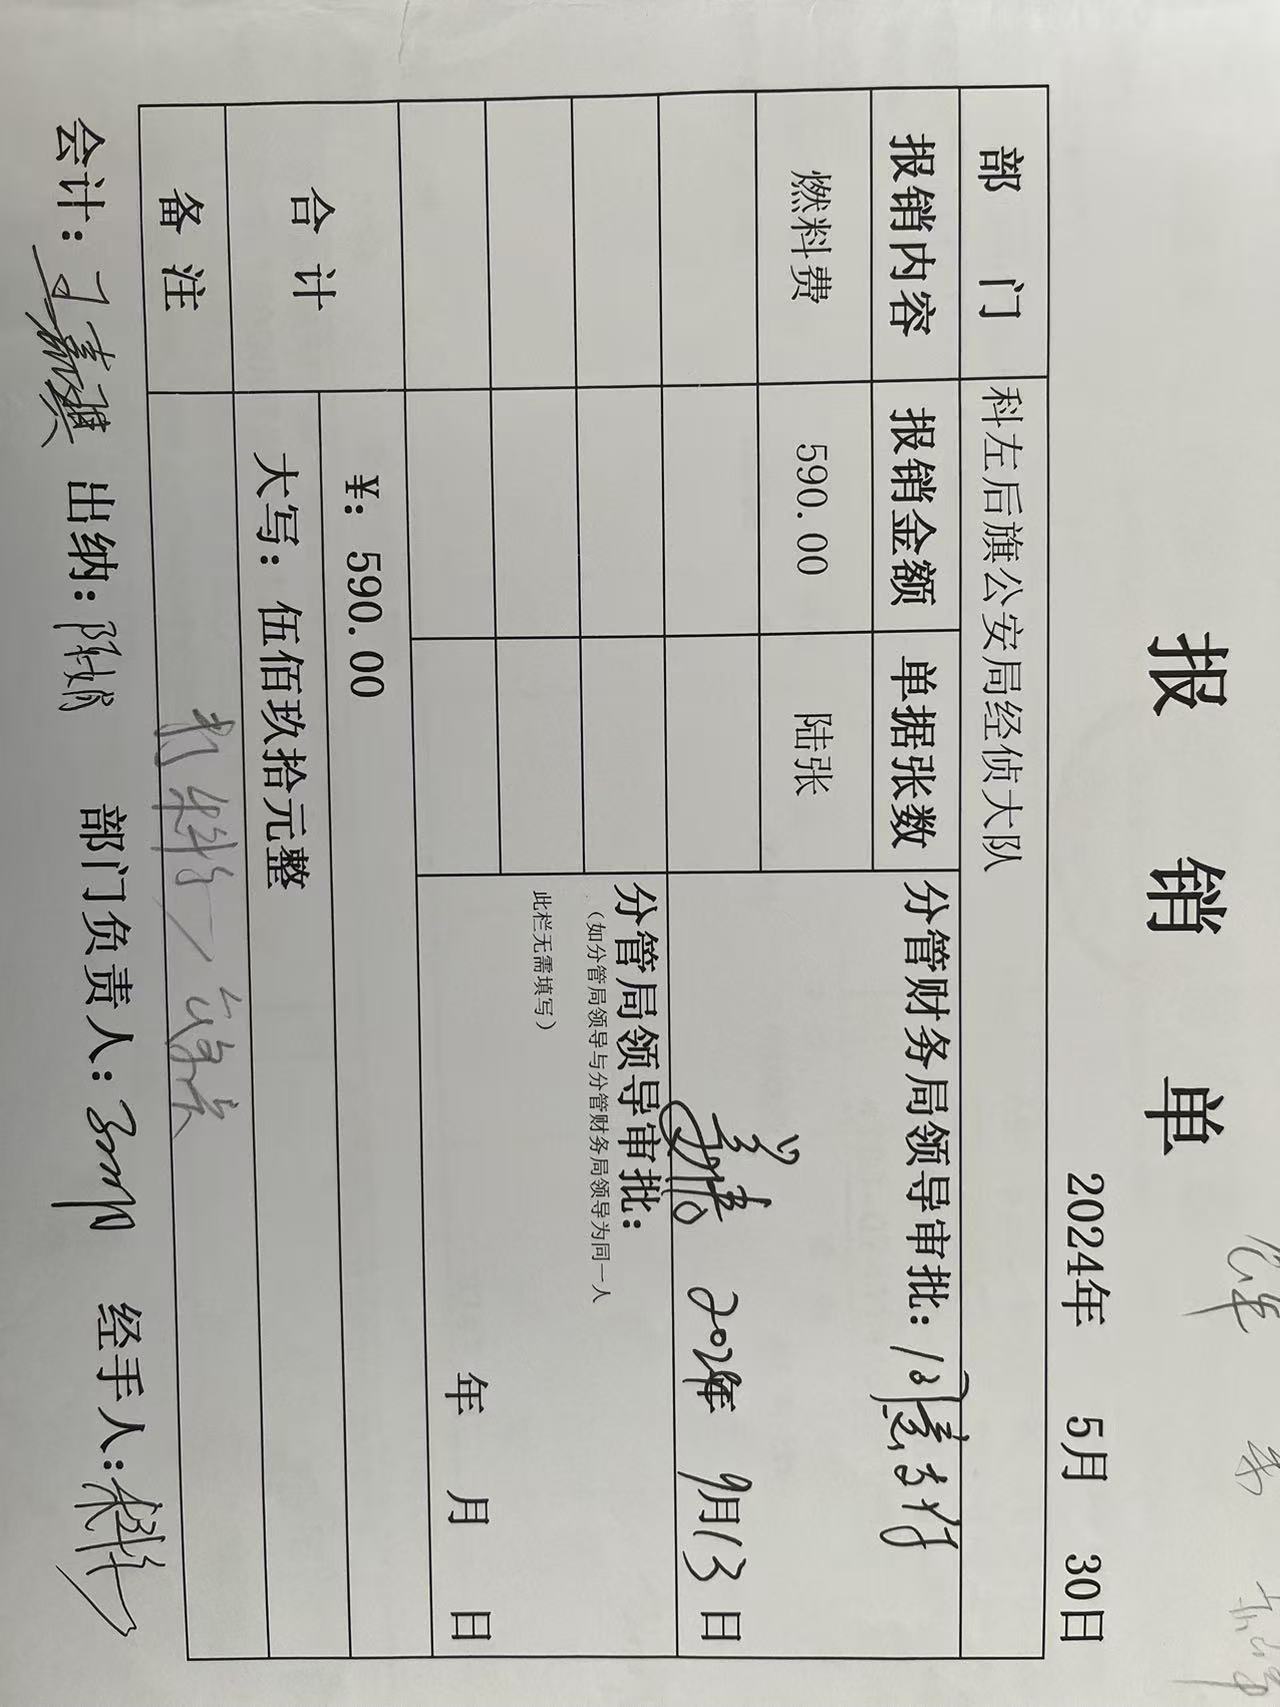 报 销 单
2024年 5月 30日
部 门 科左后旗公安局经侦大队
报销内容 报销金额 单据张数 分管财务局领导审批：
燃料费 590.00 陆张
2024年 9月13日
分管局领导审批：
（如分管局领导与分管财务局领导为同一人
此栏无需填写）
年 月 日
合 计 ¥：590.00
大写：伍佰玖拾元整
备 注
会计： 出纳： 部门负责人： 经手人：